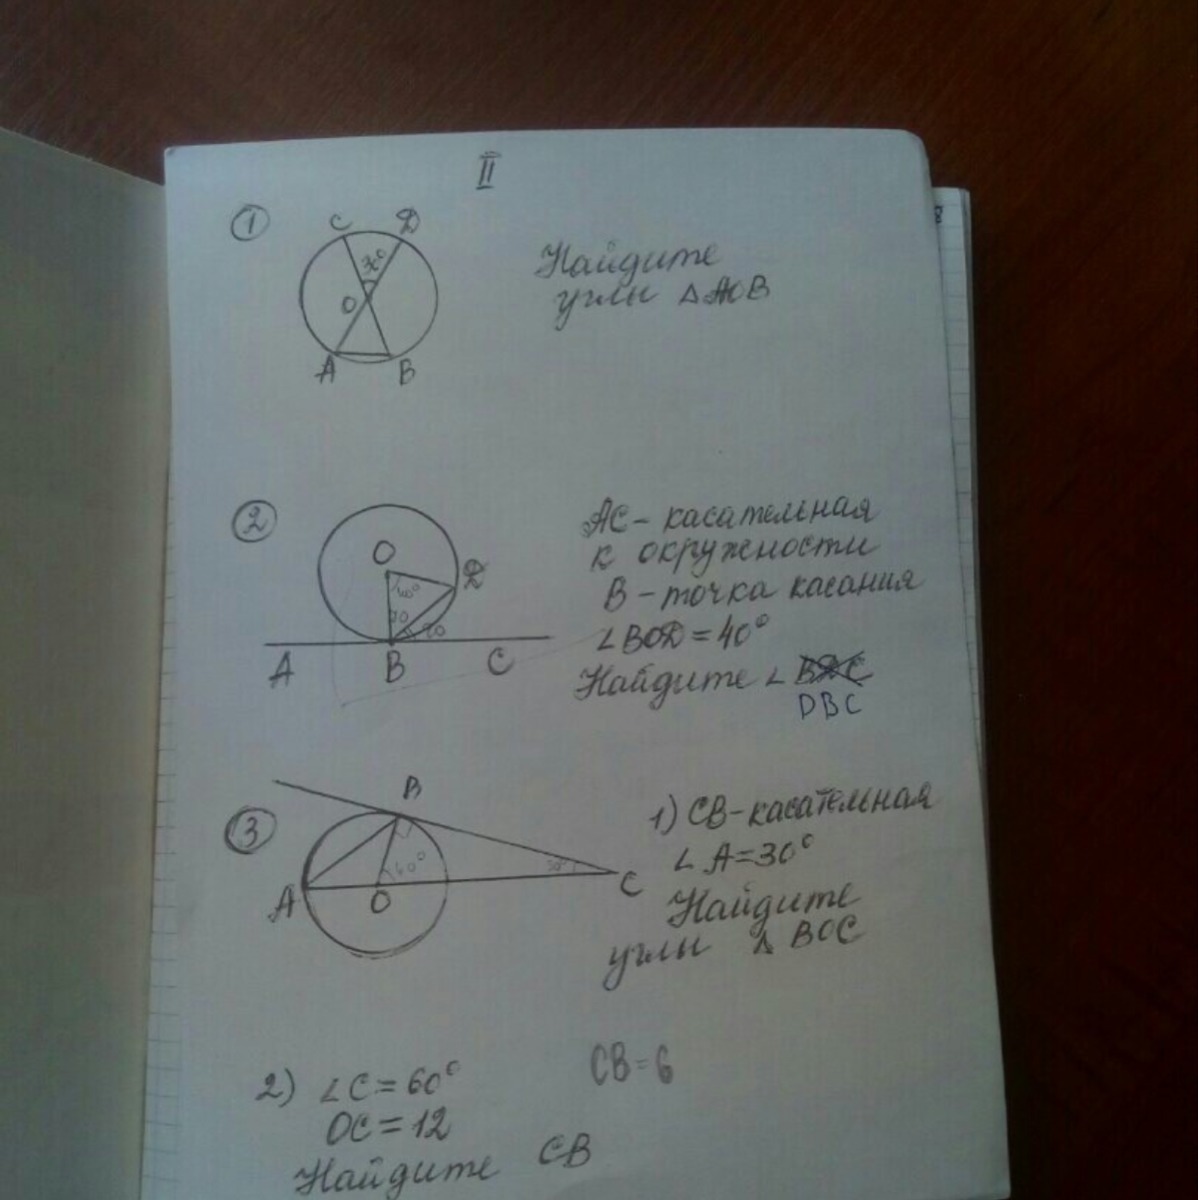 II
1
C D
30°
O
A B
Найдите
углы △ AOB
2
O
D
40°
70
20
A B C
AC - касательная
к окружности
B - точка касания
∠BOD = 40°
Найдите ∠ BDC
DBC
3
B
A
O
C
30°
1) CB - касательная
∠ A = 30°
Найдите
углы △ BOC
2) ∠C = 60°
OC = 12
Найдите CB
CB = 6